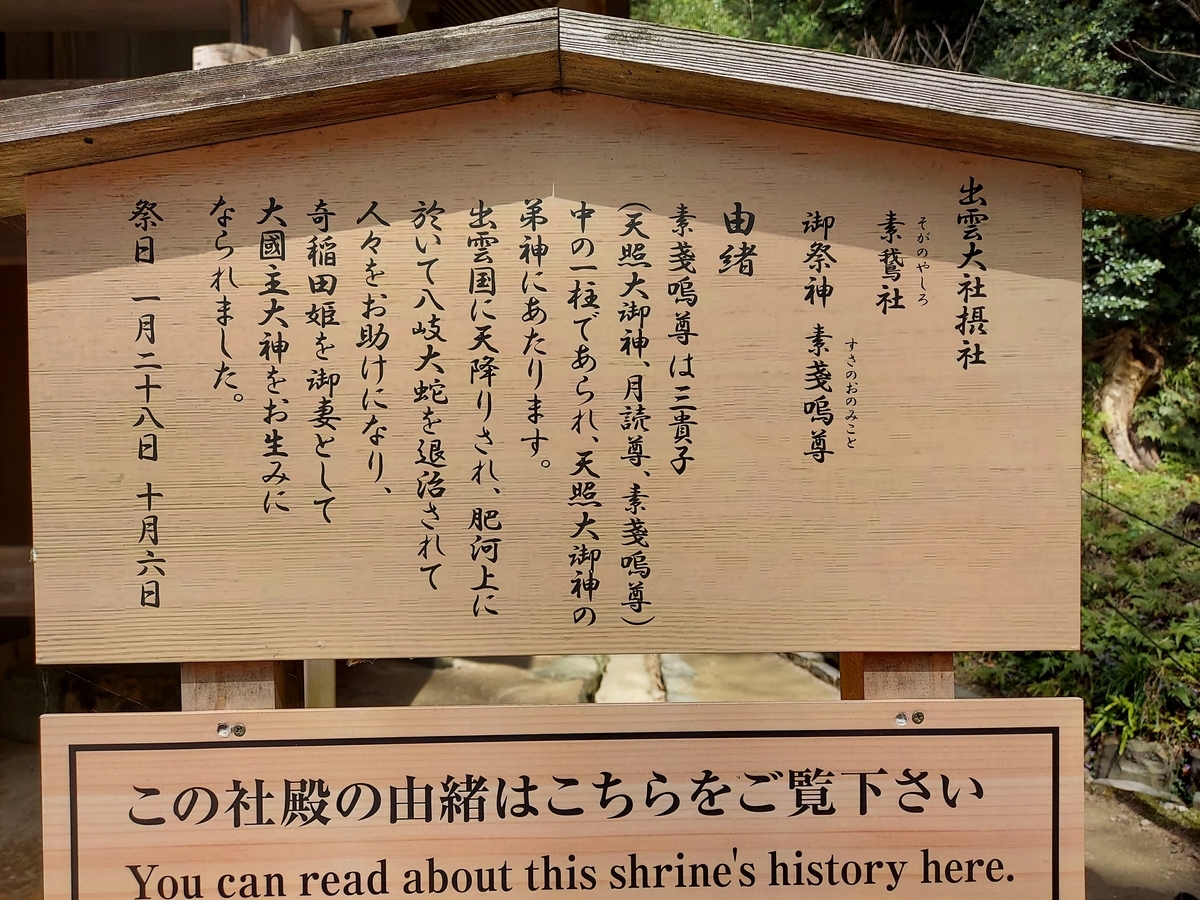 出雲大社摂社
そがのやしろ
素鵞社
すさのおのみこと
御祭神 素戔嗚尊
由緒
素戔嗚尊は三貴子
(天照大御神、月読尊、素戔嗚尊)
中の一柱であられ、天照大御神の
弟神にあたります。
出雲国に天降りされ、肥河上に
於いて八岐大蛇を退治されて
人々をお助けになり、
奇稲田姫を御妻として
大國主大神をお生みに
なられました。
祭日 一月二十八日 十月六日
この社殿の由緒はこちらをご覧下さい
You can read about this shrine's history here.